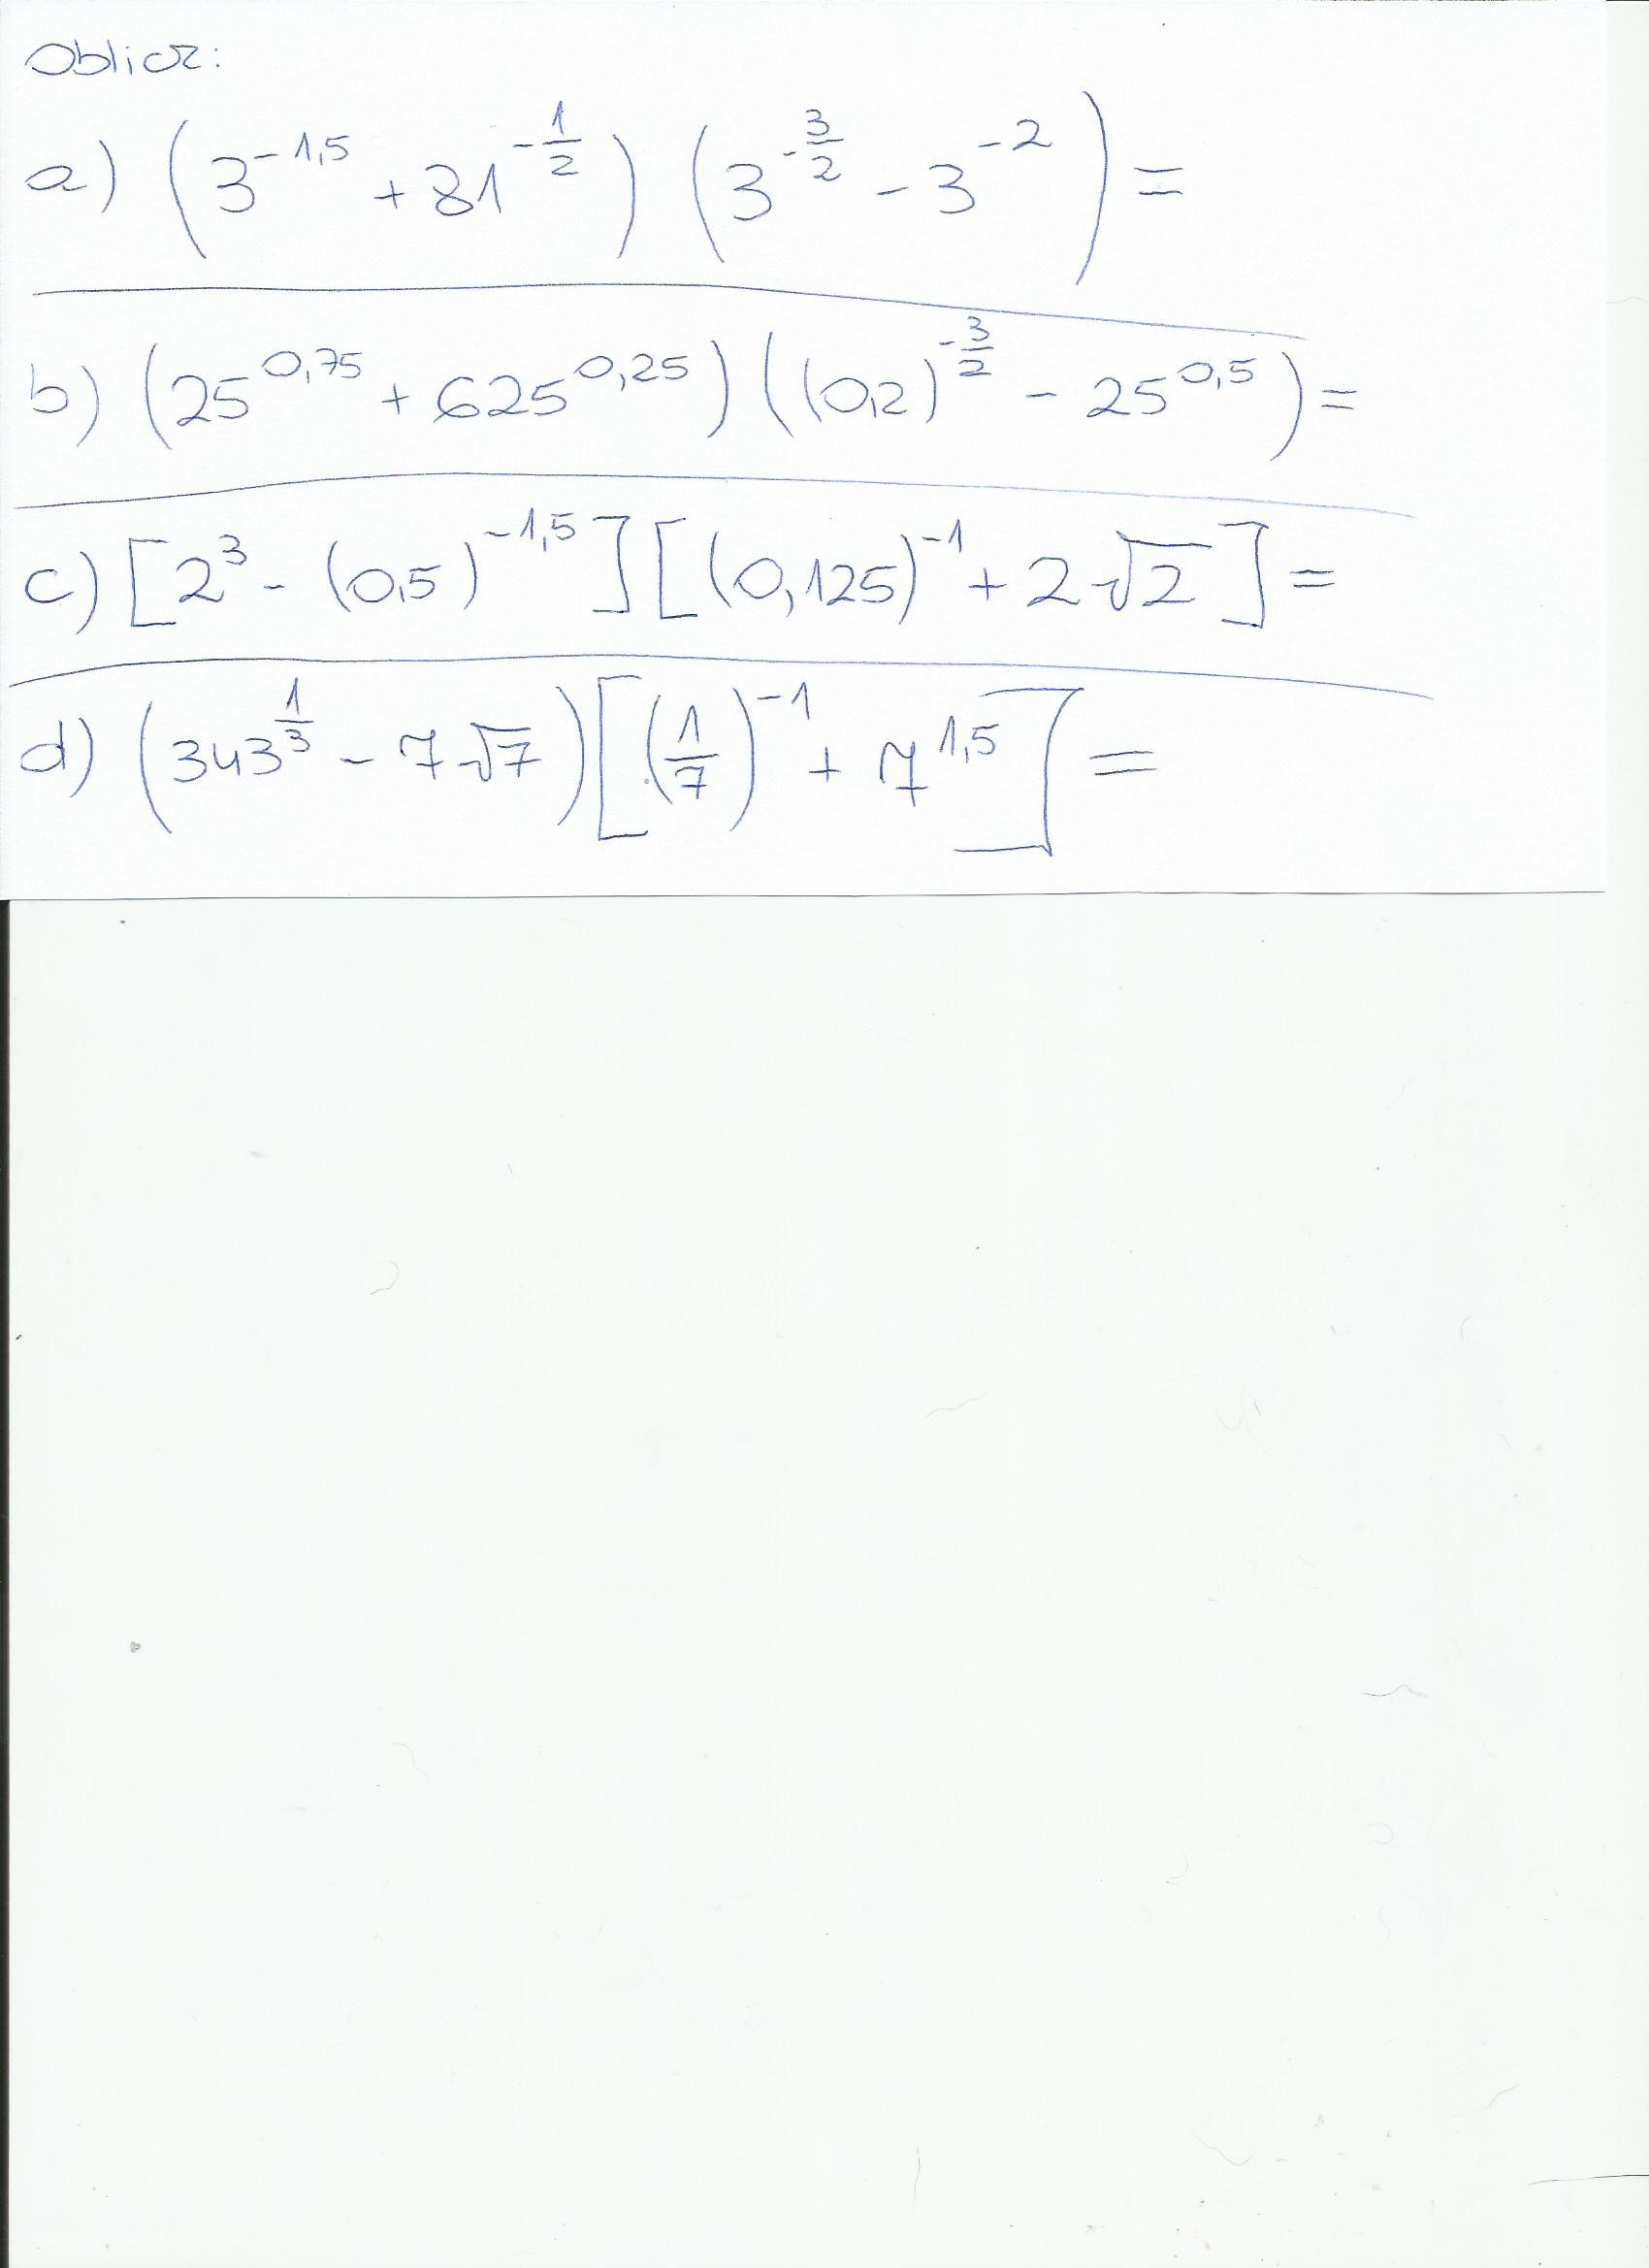 Oblicz:
a) (3^{-1,5} + 81^{-\frac{1}{2}}) (3^{-\frac{3}{2}} - 3^{-2}) =
b) (25^{0,75} + 625^{0,25}) ((0,2)^{-\frac{3}{2}} - 25^{0,5}) =
c) [2^3 - (0,5)^{-1,5}] [(0,125)^{-1} + 2\sqrt{2}] =
d) (343^{\frac{1}{3}} - 7\sqrt{7}) [(\frac{1}{7})^{-1} + 7^{1,5}] =